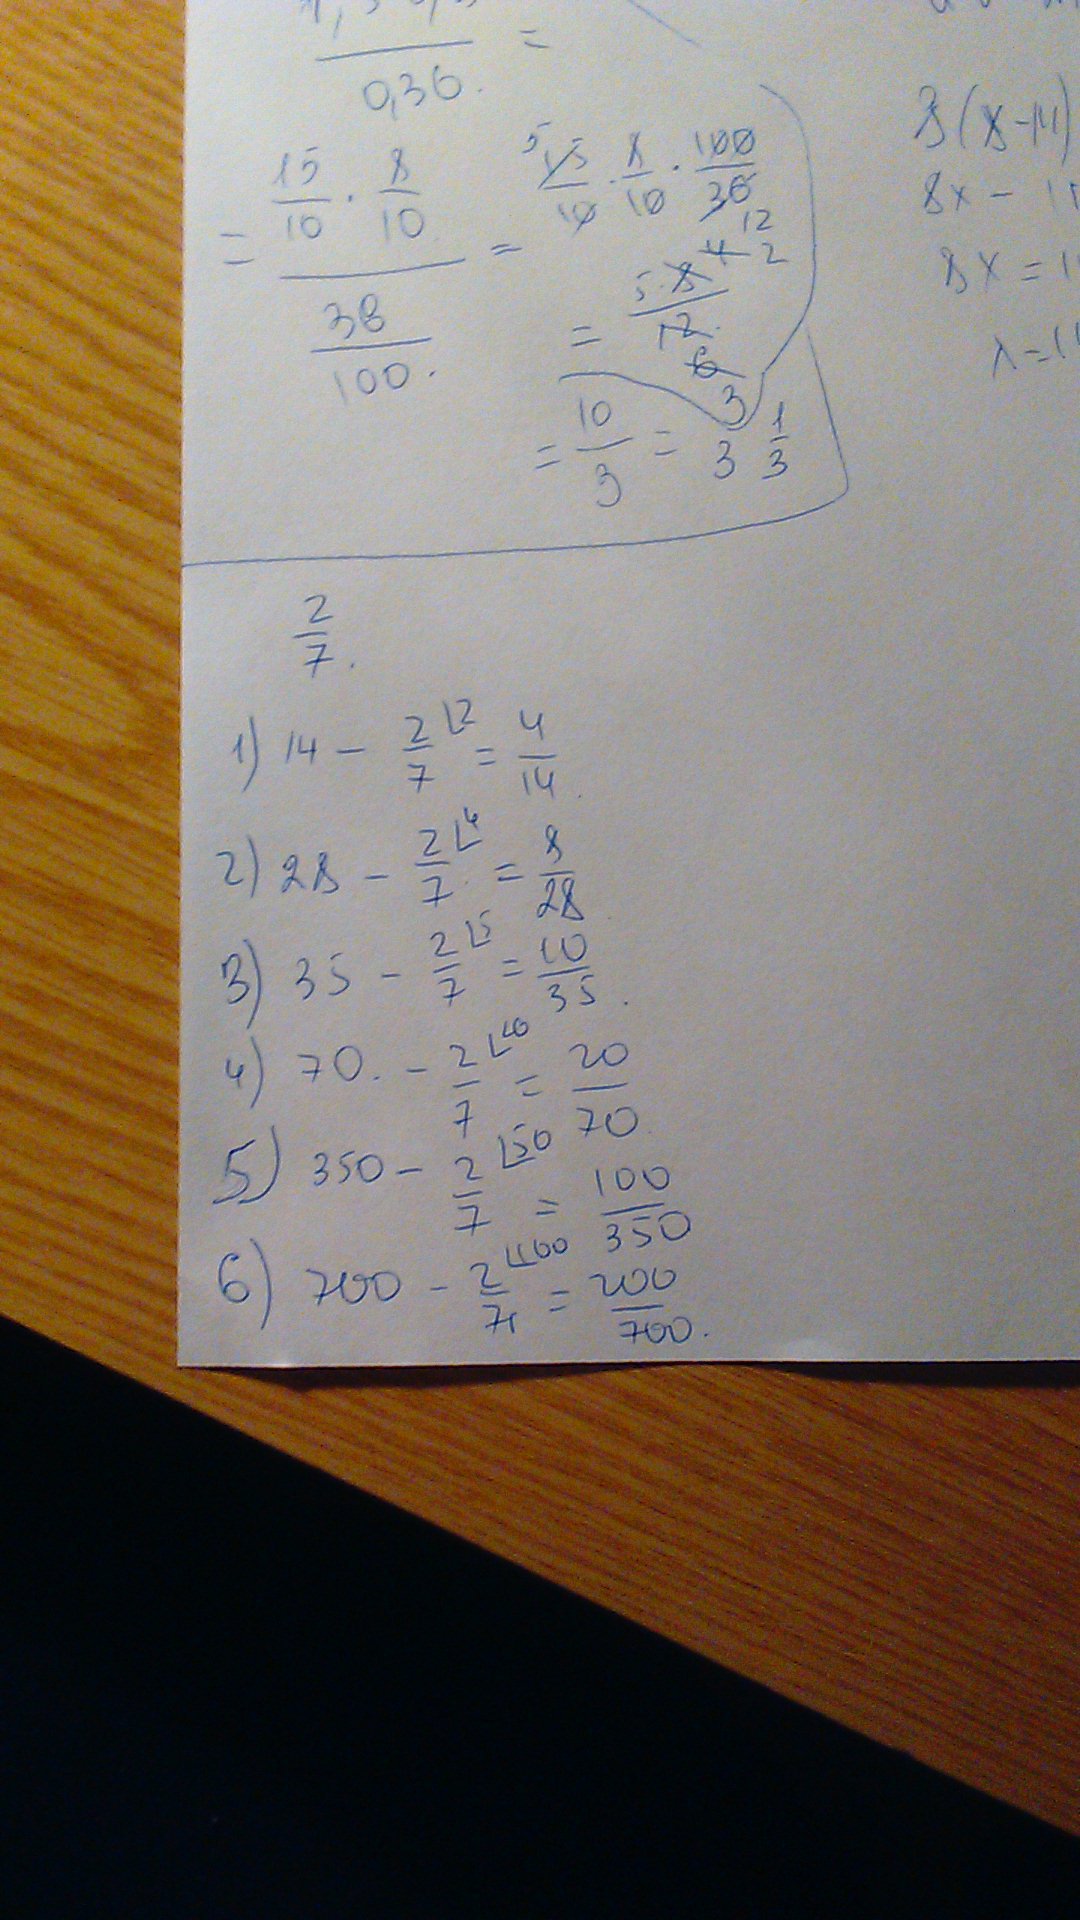 0,36.
=
= 15/10 · 8/10 / 36/100. = 5 15/10 · 8/10 · 100/36 12
= 5·8 4 2/12. 6 3
= 10/3 = 3 1/3
8x -
8x = 1
2/7.
1) 14 - 2/7 ∟2 = 4/14
2) 28 - 2/7 ∟4 = 8/28
3) 35 - 2/7 ∟5 = 10/35.
4) 70. - 2/7 ∟10 = 20/70
5) 350 - 2/7 ∟50 = 100/350
6) 700 - 2/7 ∟100 = 200/700.